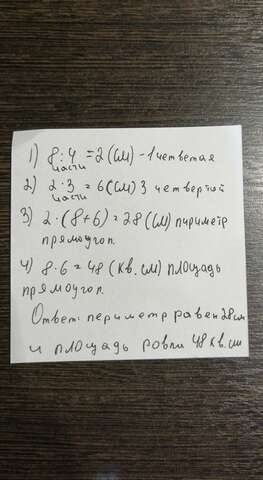 1) 8:4 = 2 (см) - 1 четветая
части
2) 2·3 = 6 (см) 3 четвертой
части
3) 2·(8+6) = 28 (см) пириметр
прямоугол.
4) 8·6 = 48 (кв.см) площадь
прямоугол.
Ответ: периметр равен 28 см
и площадь ровпи 48 кв.см